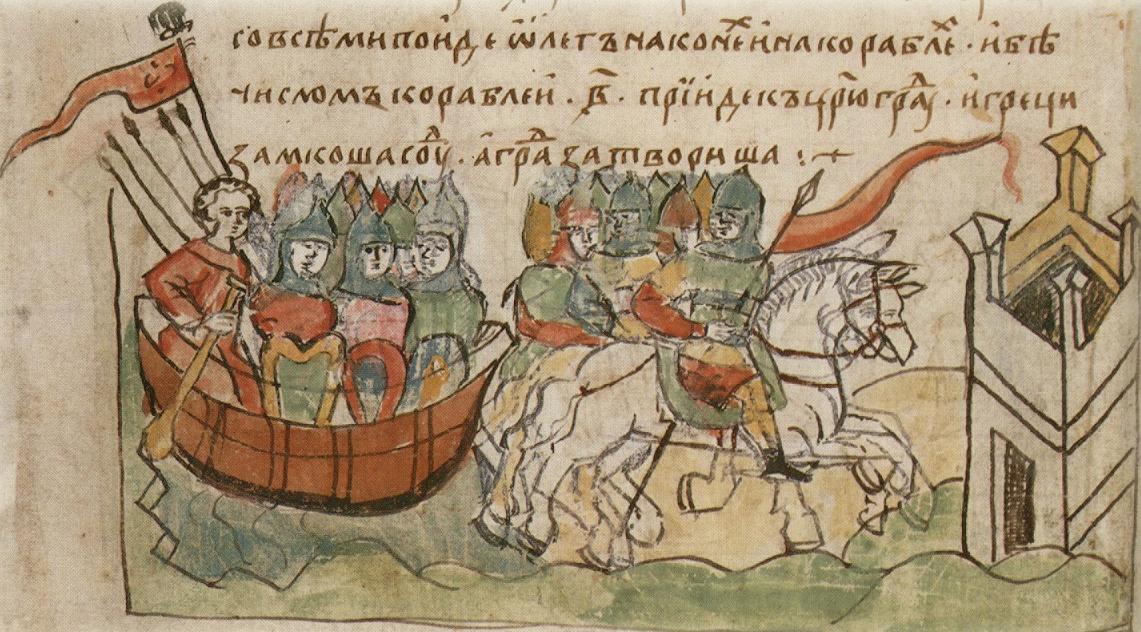 совсѣмипоиде ѡ҆легъ наконехъ инакораблехъ · и҆бѣ
числомъ кораблеи · в҃ · прїидекъцр҃югра · и҆греци
замкошасоуд · а҆града затвориша :·